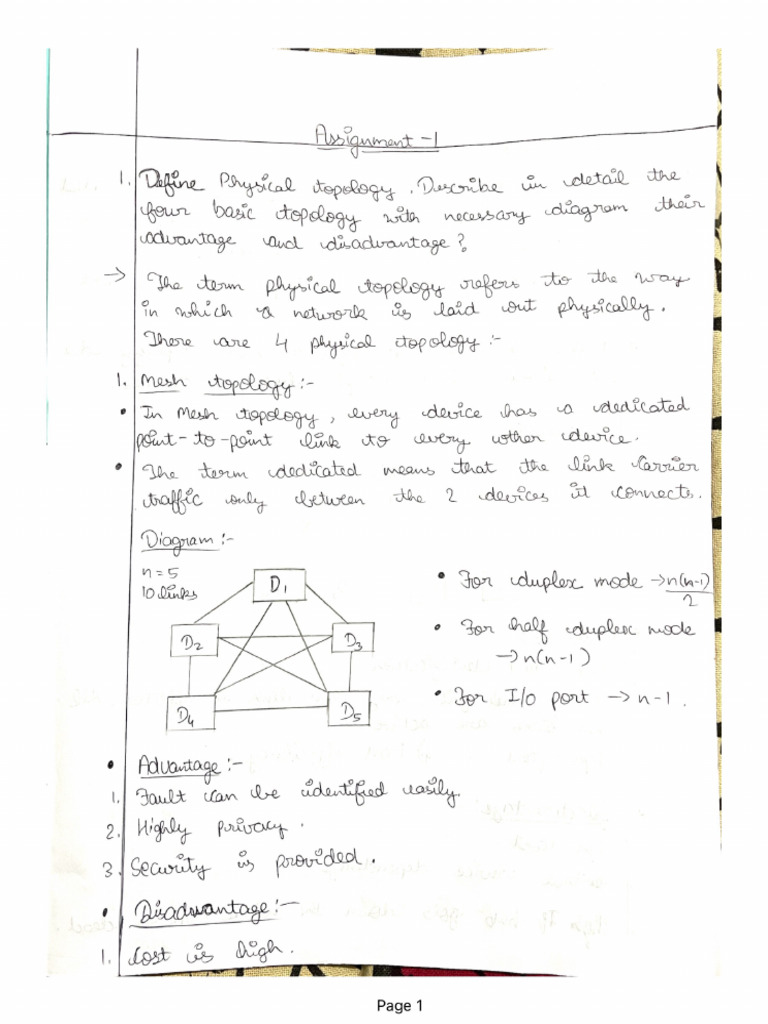 Assignment-1
1. Define Physical topology. Describe in detail the
four basic topology with necessary diagram their
advantage and disadvantage?
→ The term physical topology refers to the way
in which a network is laid out physically.
There are 4 physical topology :-
1. Mesh topology :-
• In Mesh topology, every device has a dedicated
point-to-point link to every other device.
• The term dedicated means that the link carrier
traffic only between the 2 devices it connects.
Diagram :-
n = 5
10 links
D1
D2
D3
D4
D5
• For duplex mode → n(n-1)/2
• For half duplex mode
→ n(n-1)
• For I/O port → n-1.
• Advantage :-
1. Fault can be identified easily.
2. Highly privacy.
3. Security is provided.
• Disadvantage :-
1. Cost is high.
Page 1